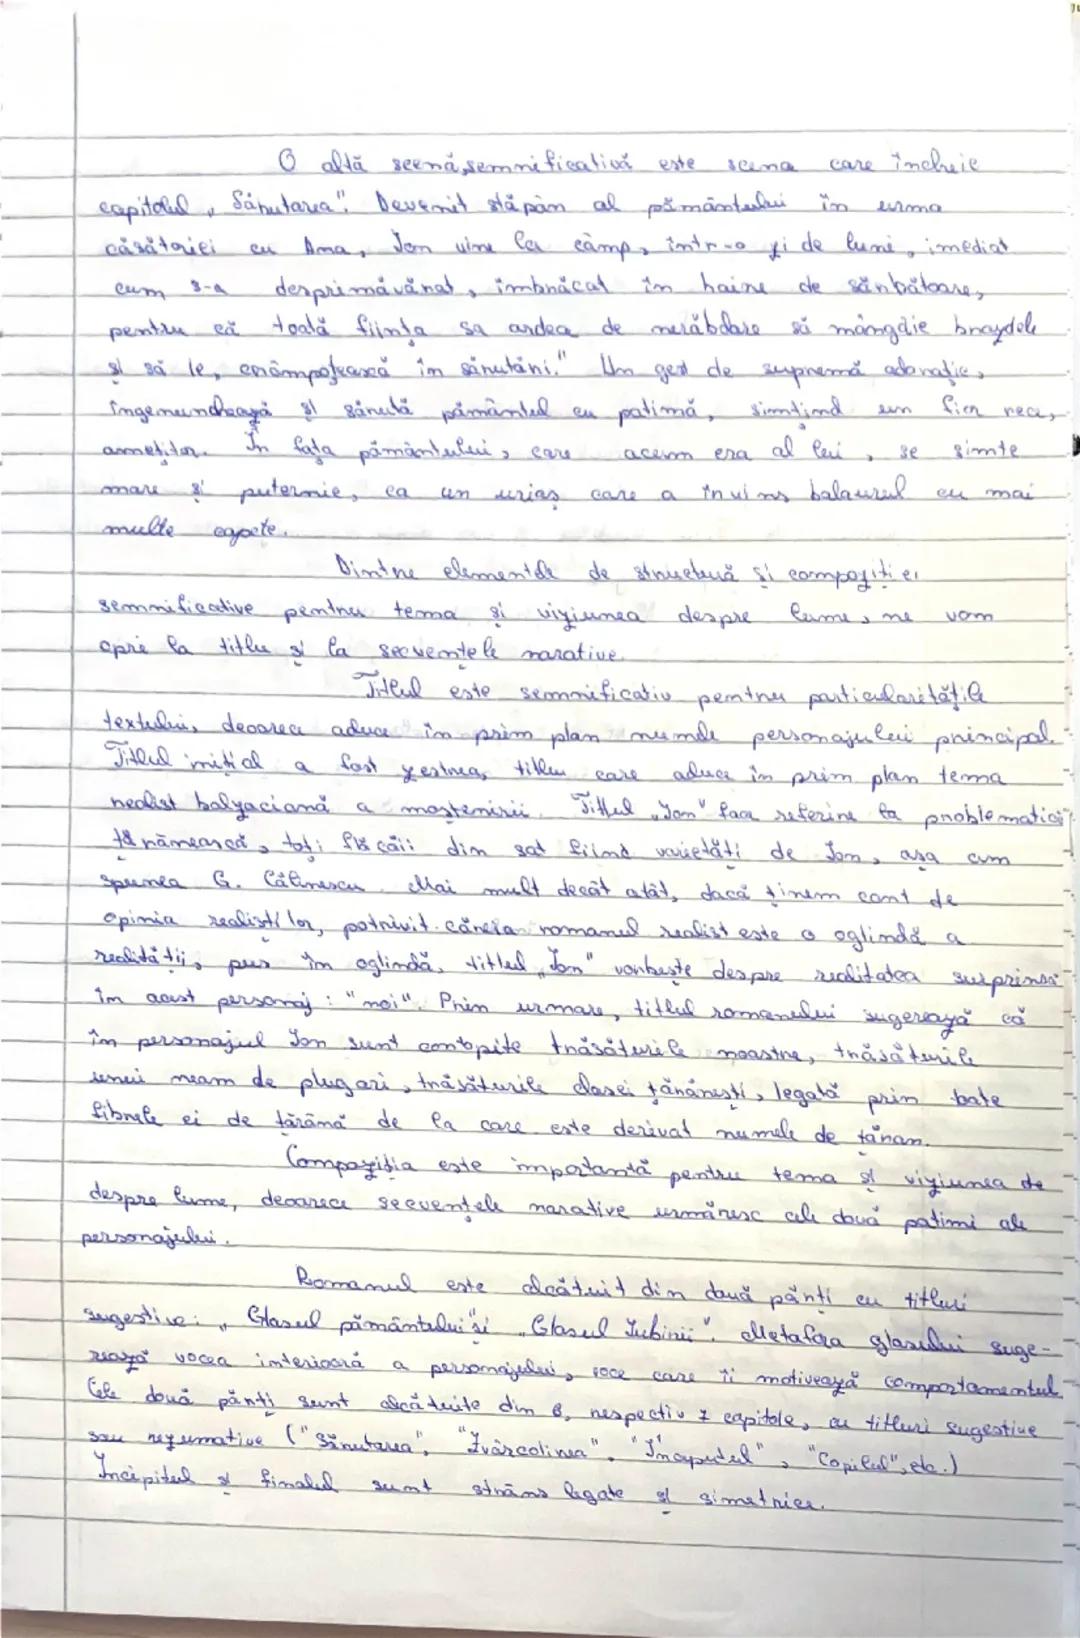 O altă scenă semnificativă este scena care încheie
capitolul „Sărutarea". Devenit stăpân al pământului în urma
căsătoriei cu Ana, Ion vine la câmp, într-o zi de luni, imediat
cum s-a desprimăvărat, îmbrăcat în haine de sărbătoare,
pentru că toată ființa sa ardea de nerăbdare să mângâie brazdele
și să le „crâmpoțească în sărutări." Un gest de supremă adorație,
îngenunchează și sărută pământul cu patimă, simțind un fior rece,
amețitor. În fața pământului, care acum era al lui, se simte
mare și puternic, ca un uriaș care a învins balaurul cu mai
multe capete.
Dintre elementele de structură și compoziției
semnificative pentru tema și viziunea despre lume, ne vom
opri la titlu și la secvențele narative.
Titlul este semnificativ pentru particularitățile
textului, deoarece aduce în prim plan numele personajului principal.
Titlul inițial a fost zestrea, titlu care aduce în prim plan tema
realist balzaciană a moștenirii. Titlul „Ion" face referire la problematica
țărănească, toți flăcăii din sat fiind varietăți de Ion, așa cum
spunea G. Călinescu. Mai mult decât atât, dacă ținem cont de
opinia realiștilor, potrivit căreia romanul realist este o oglindă a
realității, pus în oglindă, titlul „Ion" vorbește despre realitatea surprinsă
în acest personaj: "noi". Prin urmare, titlul romanului sugerează că
în personajul Ion sunt contopite trăsăturile noastre, trăsăturile
unui neam de plugari, trăsăturile clasei țărănești, legată prin toate
fibrele ei de țărână de la care este derivat numele de țăran.
Compoziția este importantă pentru tema și viziunea de
despre lume, deoarece secvențele narative urmăresc cele două patimi ale
personajului.
Romanul este alcătuit din două părți cu titluri
sugestive: „Glasul pământului" și „Glasul Iubirii". Metafora glasului suge-
rează vocea interioară a personajului, voce care îi motivează comportamentul.
Cele două părți sunt alcătuite din 6, respectiv 7 capitole, cu titluri sugestive
sau rezumative ("Sărutarea", "Zvârcolirea", "Începutul", "Copilul", etc.)
Incipitul și finalul sunt strâns legate și simetrice.